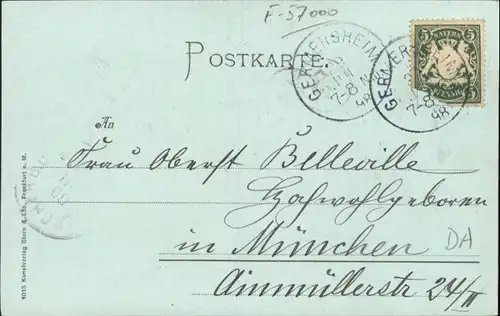 F-57000
POSTKARTE.
GERMERSHEIM
7-8 N
98
GERMERSHEIM
7-8
98
BAYERN
5 5
PFENNIG
An
Frau Oberst Belleville
Hochwohlgeboren
in München
DA
Ainmüllerstr 24/II
1015 Kunstverlag Stern & Cie., Frankfurt a. M.